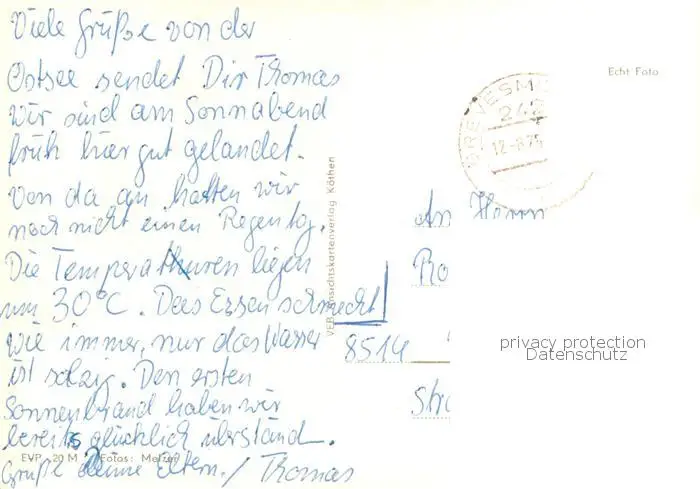 Viele Grüße von der
Ostsee sendet Dir Thomas
Wir sind am Sonnabend
früh hier gut gelandet.
Von da an hatten wir
noch nicht einen Regentag.
Die Temperaturen liegen
um 30°C. Das Essen schmeckt
wie immer, nur das Wasser
ist salzig. Den ersten
Sonnenbrand haben wir
bereits glücklich überstand.
Grüße Deine Eltern./ Thomas
EVP -20 M Fotos: Melzer
VEB Ansichtskartenverlag Köthen
Echt Foto
GREVESM
242
12.-8.75
An Herrn
Ro
8514
Str
privacy protection
Datenschutz